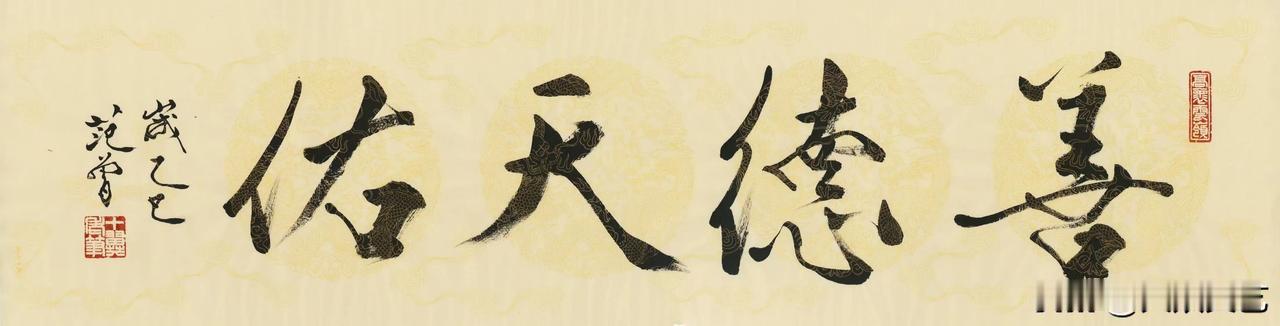 善德天佑
歲乙巳
范曾